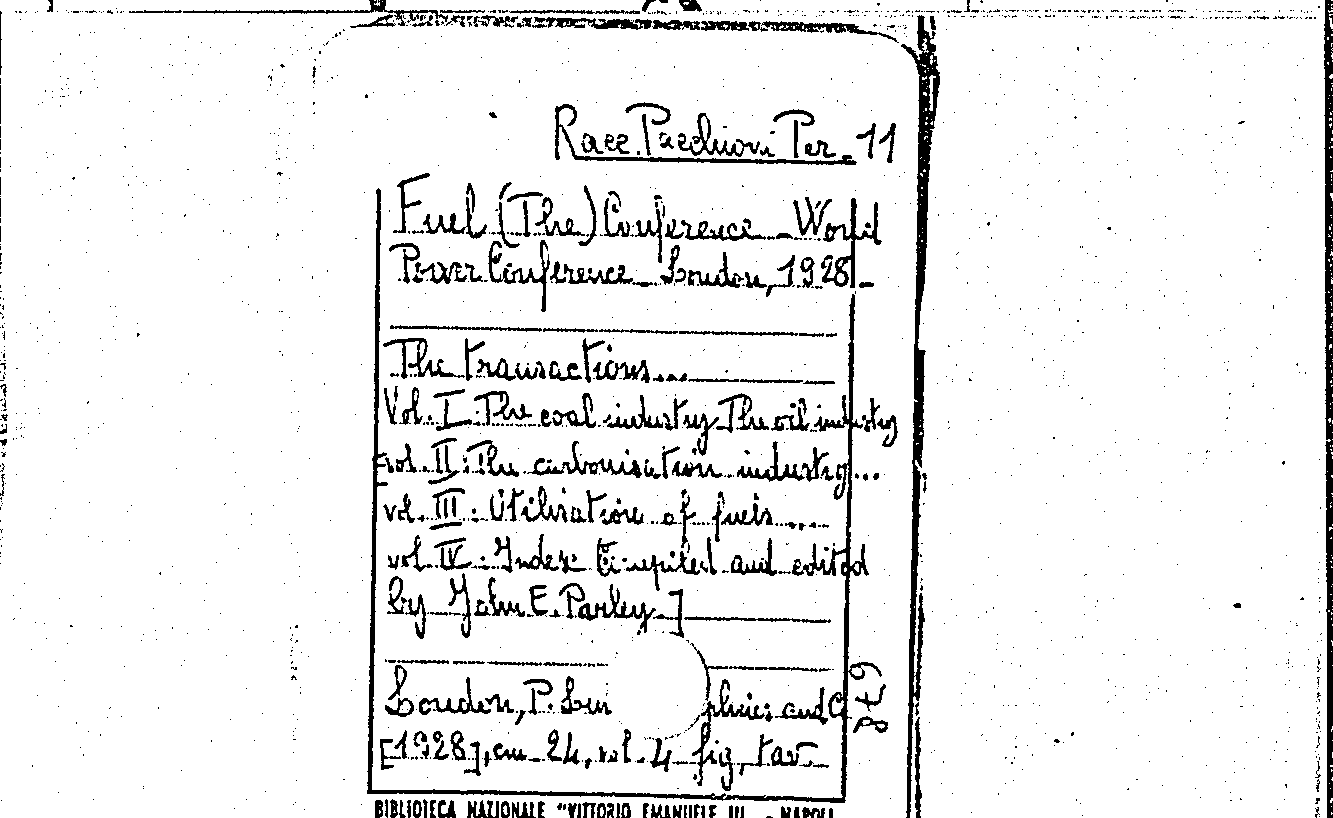 Racc. Pacchioni Per. 11
Fuel (The) Conference - World
Power Conference - London, 1928 -
The transactions...
Vol. I: The coal industry. The oil industry
vol. II: The carbonisation industry...
vol. III: Utilisation of fuels....
vol. IV: Index [Compiled and edited
by John E. Parley.]
London, P. Lun phries and C
[1928], cm. 24, vol. 4 fig, tav.
678
BIBLIOTECA NAZIONALE "VITTORIO EMANUELE III - NAPOLI